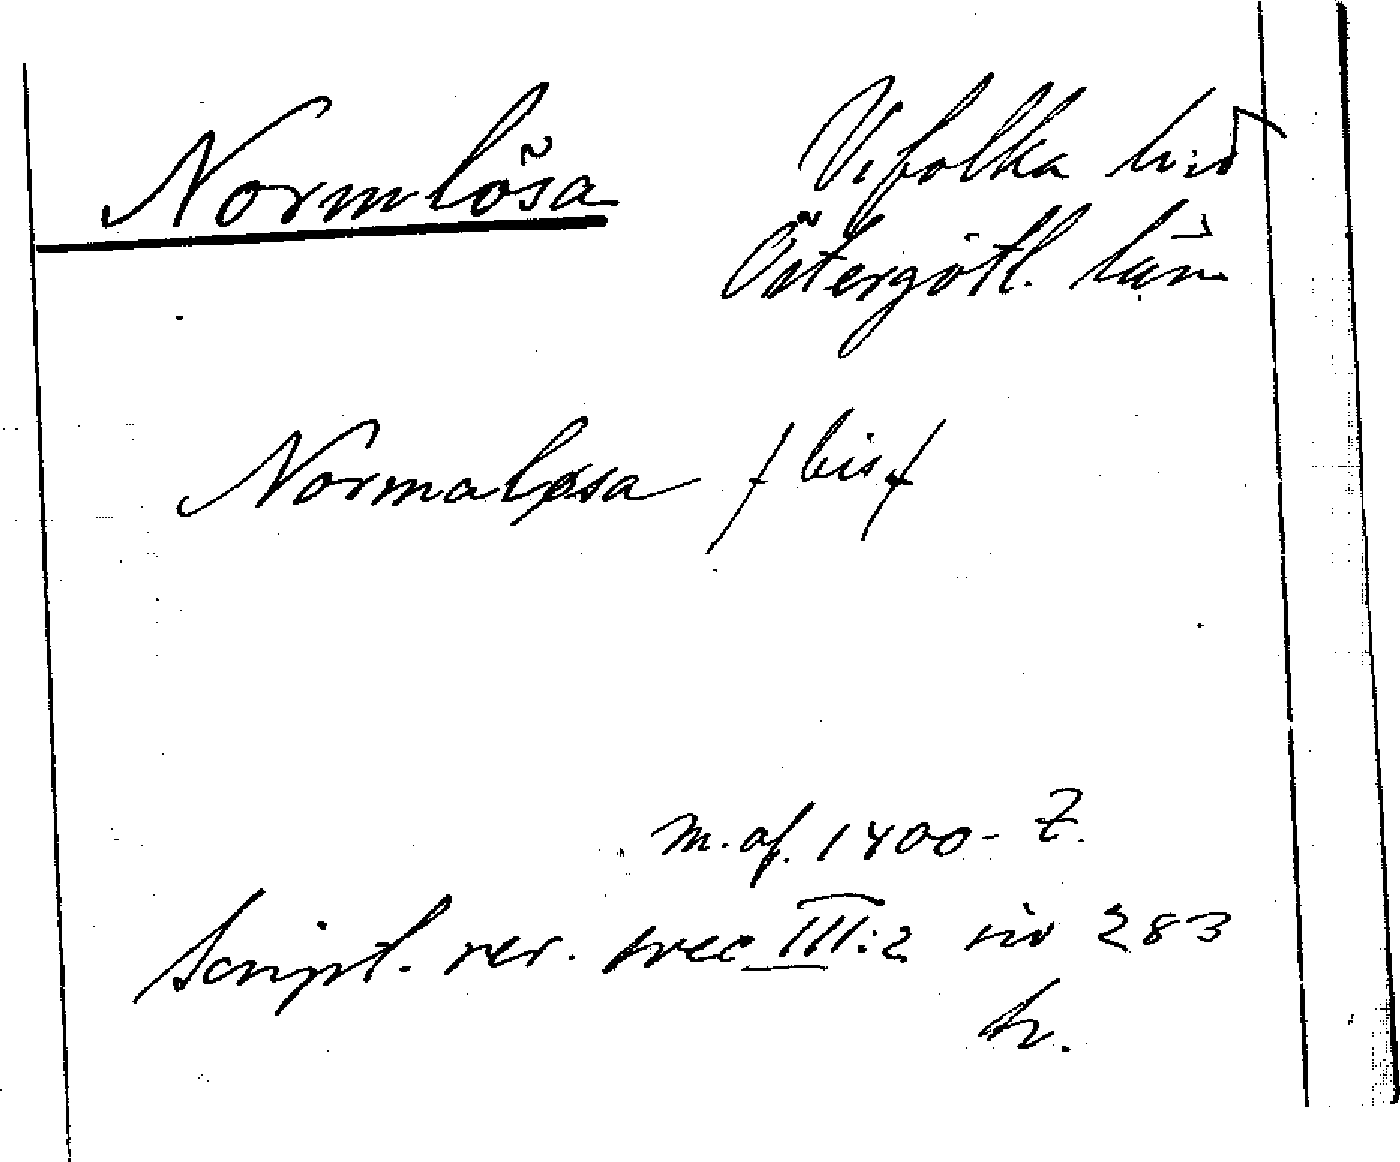 Normlösa
Vifolka hd
Östergötl. län
Normaløsa / bis /
m. af. 1400- t.
Script. rer. svec III:2 sid 283
h.